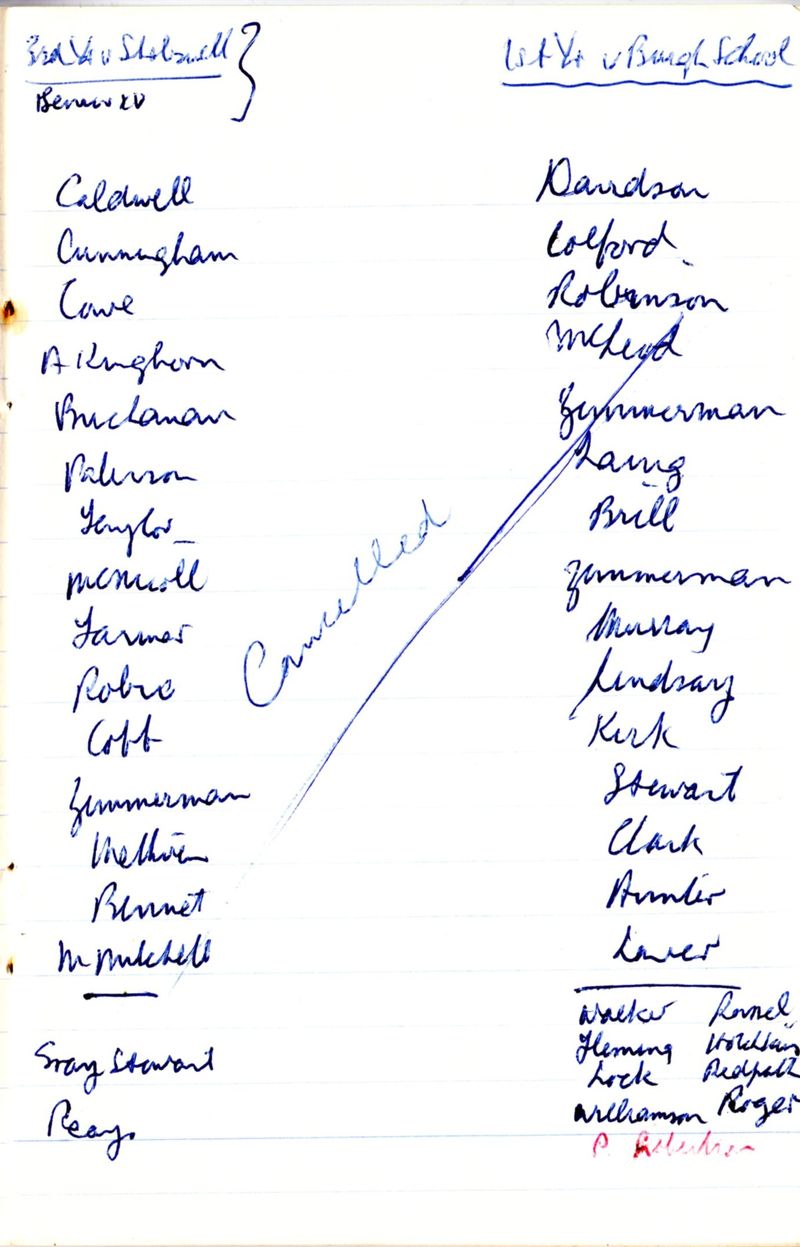 3rd Yr v Stobswell
Benew XV
Caldwell
Cunningham
Cowe
A Kinghorn
Buchanan
Paterson
Taylor
McNicoll
Farmer
Robbie
Cobb
Zimmerman
Methven
Bennet
M Mitchell
Gray Stewart
Reay.
Cancelled
1st Yr v Burgh School
Davidson
Colford
Robinson
McLeod
Zimmerman
Laing
Brill
Zimmerman
Murray
Lindsay
Kirk
Stewart
Clark
Hunter
Lawer
Walker
Fleming
Lock Redpath
Williamson Roger
P. Robertson